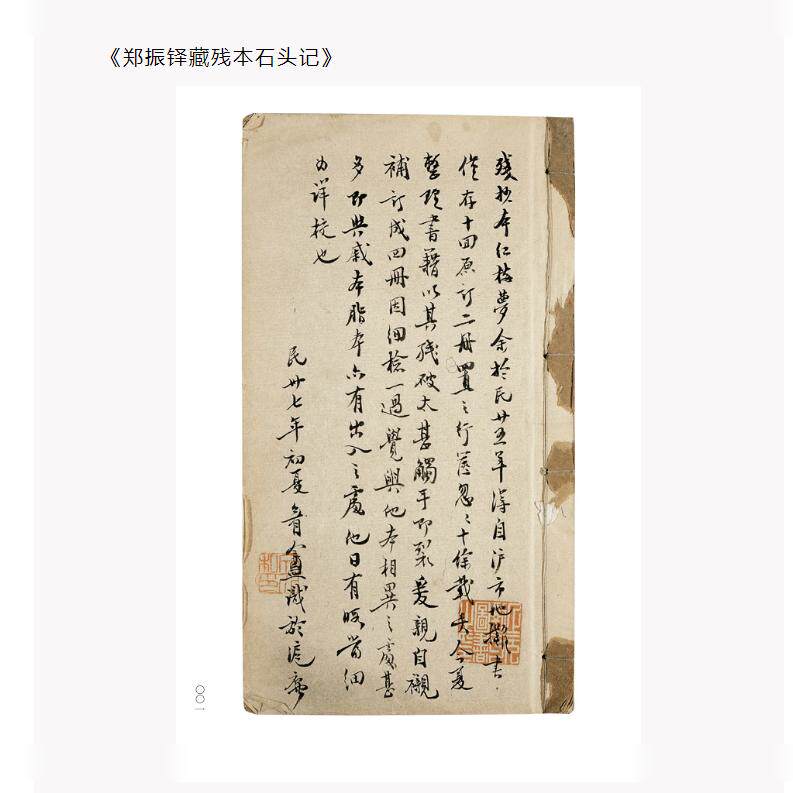 《郑振铎藏残本石头记》
残抄本红楼夢余於民廿五年得自沪市地攤书
僅存十回原订二册置之行箧忽〻十餘載矣今夏
整理書籍以其残破太甚觸手即裂爰親自襯
補訂成四册因细检一過覺與他本相異之處甚
多即與戚本脂本亦有出入之處他日有暇當细
为詳校也
民卅七年初夏人識於滬寓
001